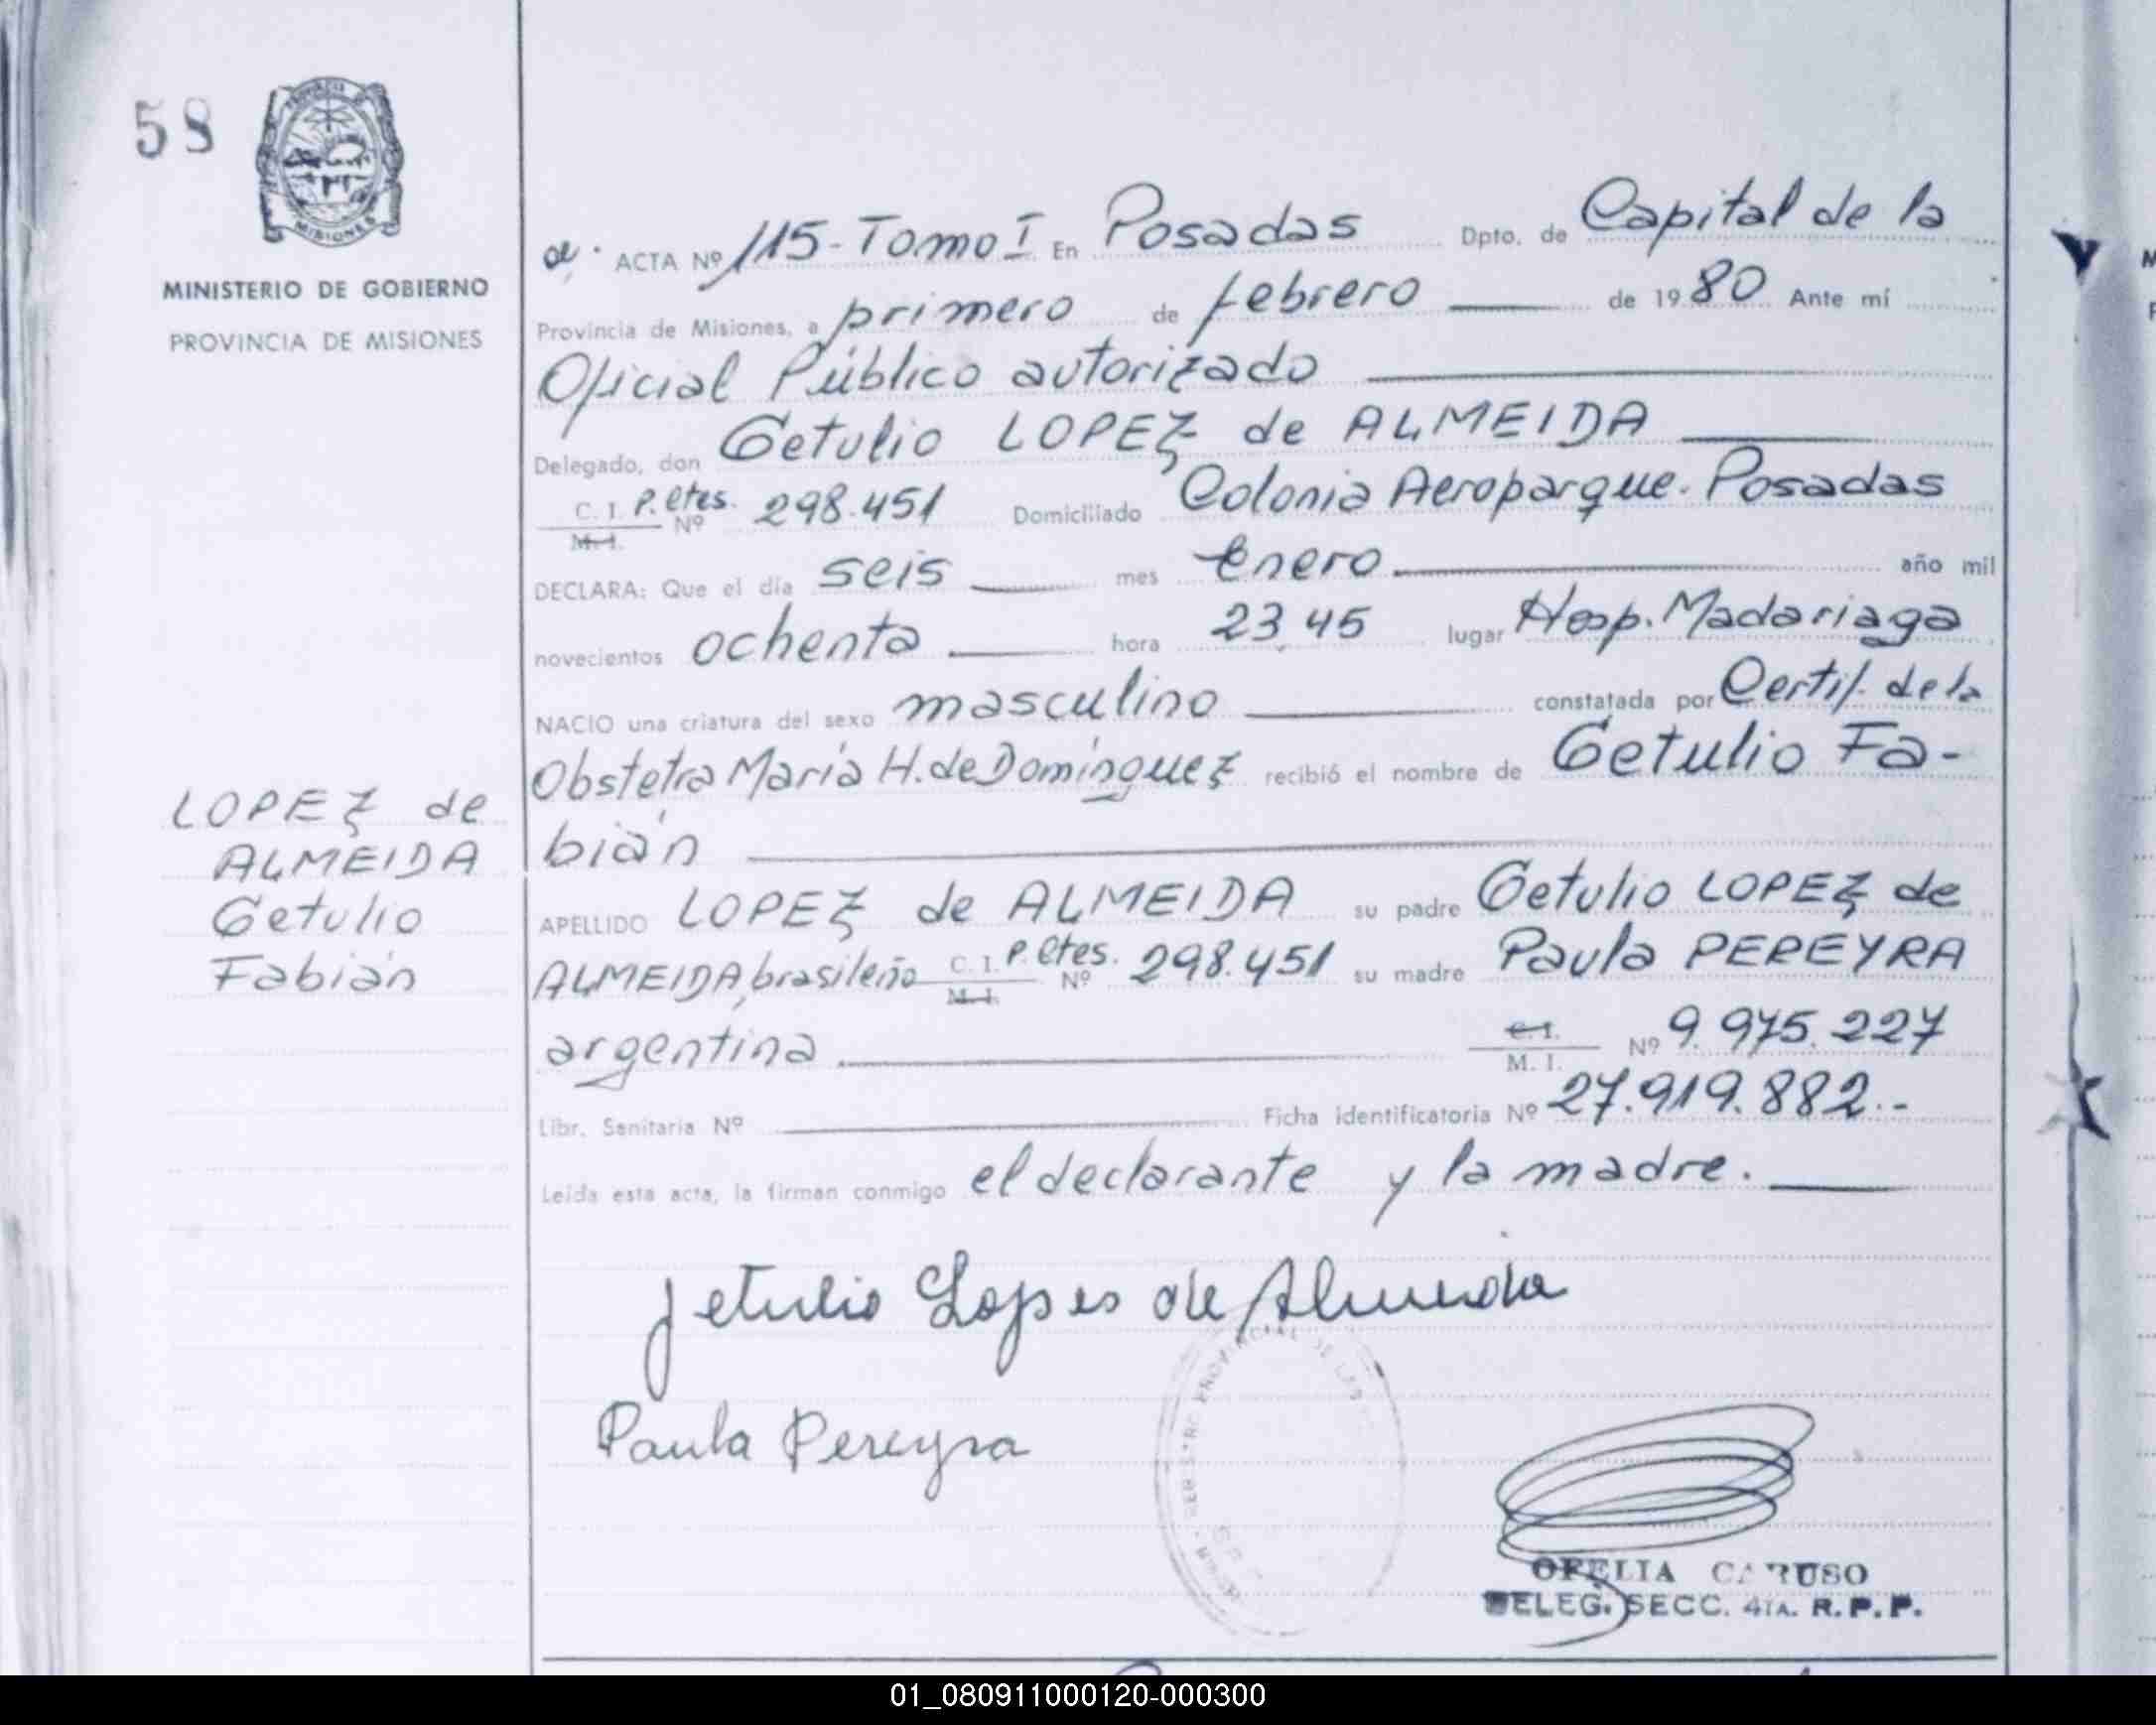 58
MISIONES
MINISTERIO DE GOBIERNO
PROVINCIA DE MISIONES
LOPEZ de
ALMEIDA
Getulio
Fabián
ACTA Nº 115 - Tomo I En Posadas Dpto. de Capital de la
Provincia de Misiones, a primero de febrero de 1980 Ante mí
Oficial Público autorizado
Delegado, don Getulio LOPEZ de ALMEIDA
C. I. P. Ctes. Nº 298.451 Domiciliado Colonia Aeroparque. Posadas
M. I.
DECLARA: Que el día seis mes Enero año mil
novecientos ochenta hora 23,45 lugar Hosp. Madariaga
NACIO una criatura del sexo masculino constatada por Certif. de la
Obstetra María H. de Domínguez recibió el nombre de Getulio Fa-
bián
APELLIDO LOPEZ de ALMEIDA su padre Getulio LOPEZ de
ALMEIDA, brasileño C. I. P. Ctes. Nº 298.451 su madre Paula PEREYRA
M. I.
argentina C. I. Nº 9.975.227
M. I.
Libr. Sanitaria Nº Ficha identificatoria Nº 27.919.882.-
Leída esta acta, la firman conmigo el declarante y la madre.
Jetulio Lopes de Almeida
Paula Pereyra
OFELIA CARUSO
DELEG. SECC. 4TA. R.P.P.
01_080911000120-000300